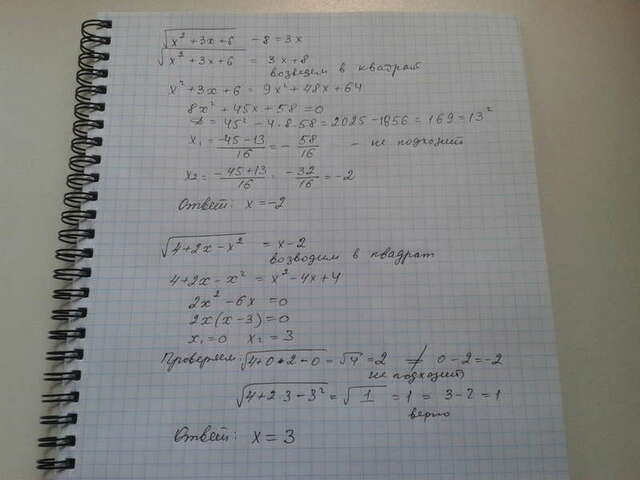 √(x² + 3x + 6) - 8 = 3x
√(x² + 3x + 6) = 3x + 8
возведем в квадрат
x² + 3x + 6 = 9x² + 48x + 64
8x² + 45x + 58 = 0
D = 45² - 4·8·58 = 2025 - 1856 = 169 = 13²
x₁ = (-45-13)/16 = -58/16 - не подходит
x₂ = (-45+13)/16 = -32/16 = -2
Ответ: x = -2
√(4 + 2x - x²) = x - 2
возводим в квадрат
4 + 2x - x² = x² - 4x + 4
2x² - 6x = 0
2x(x - 3) = 0
x₁ = 0 x₂ = 3
Проверяем: √(4+0•2-0) = √4 = 2 ≠ 0 - 2 = -2
не подходит
√(4+2·3-3²) = √1 = 1 = 3 - 2 = 1
верно
Ответ: x = 3